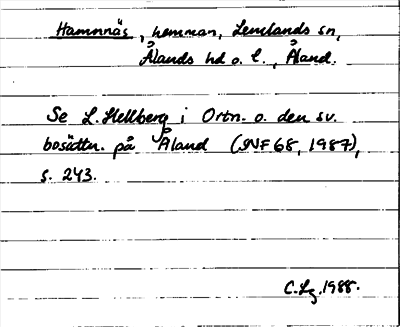 Hamnnäs, hemman, Lemlands sn,
Ålands hd o. l., Åland.
Se L. Hellberg i Ortn. o. den sv.
bosättn. på Åland (SNF 68, 1987),
s. 243.
C. Lg. 1988.